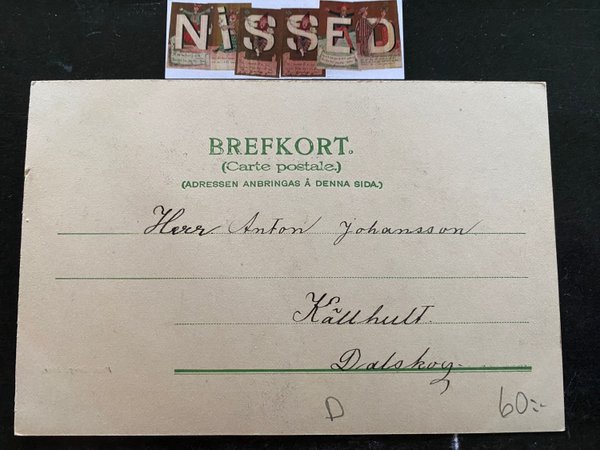 NiSSED
BREFKORT.
(Carte postale.)
(ADRESSEN ANBRINGAS Å DENNA SIDA.)
Herr Anton Johansson
Källhult.
Dalskog.
D
60:-